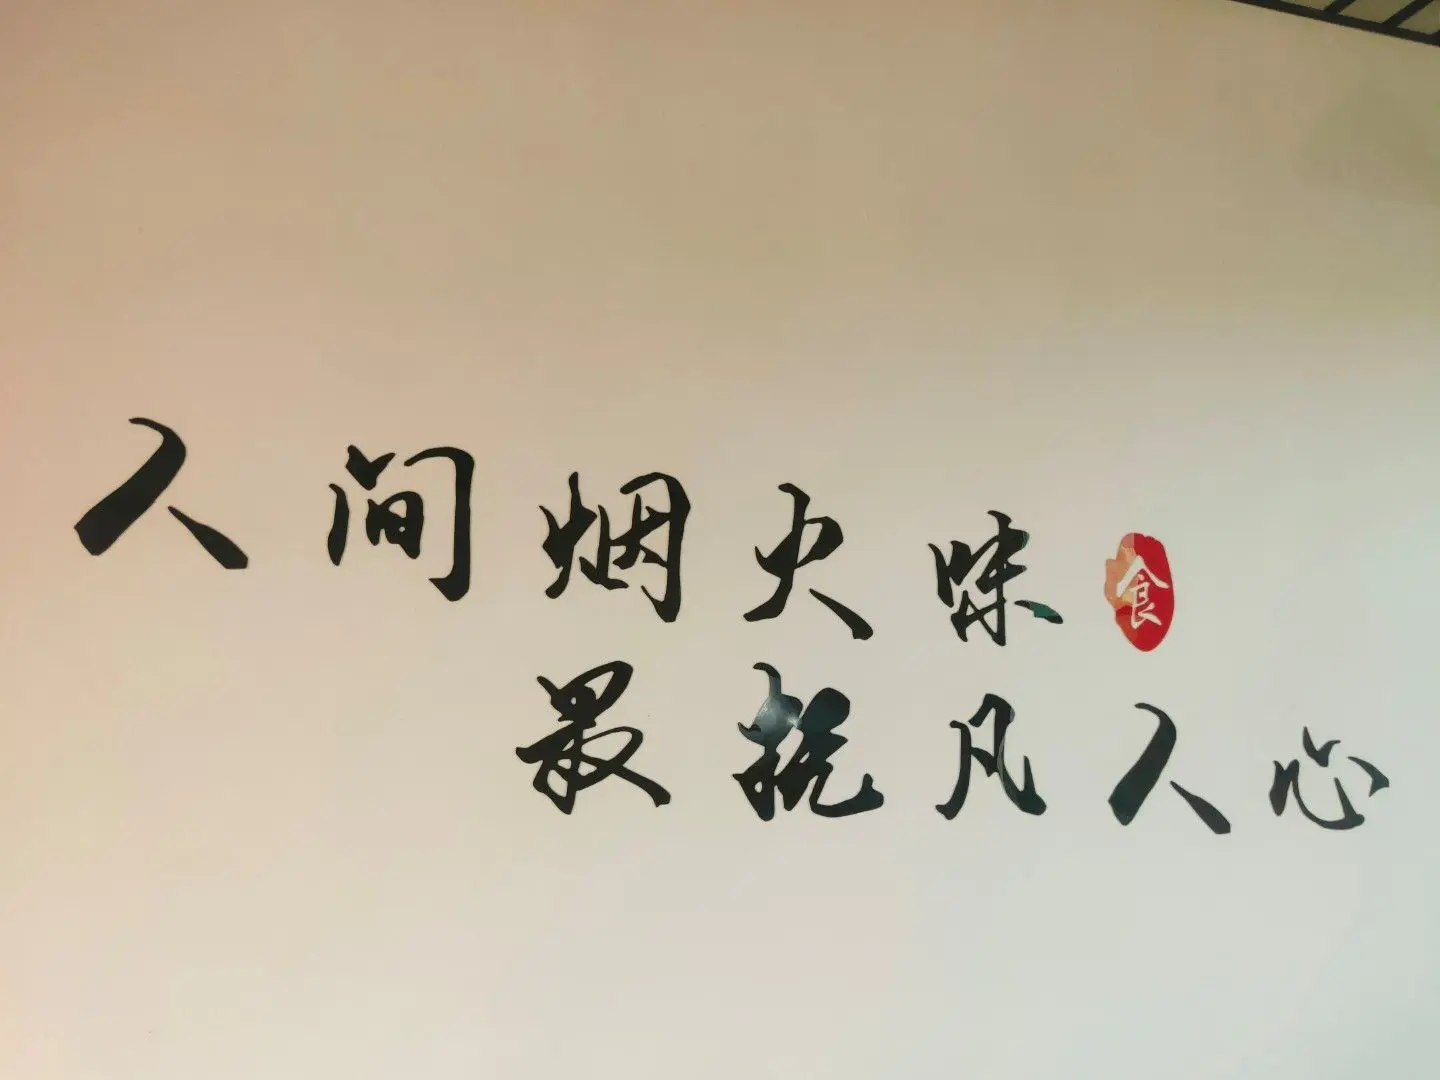 人间烟火味 食
最抚凡人心